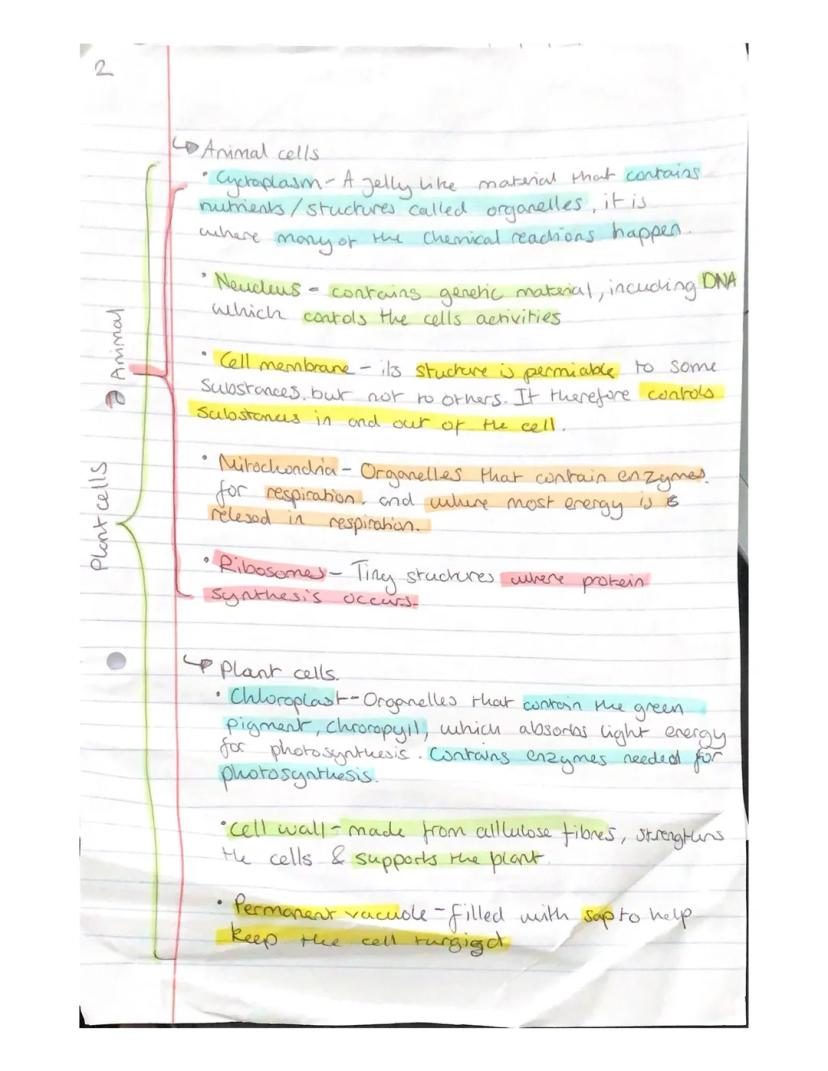 2
Animal cells
• Cyctoplasm - A jelly like material that contains
nutrients/stuctures called organelles, it is
where many of the chemical reactions happen.
• Neucleus - contains genetic material, incuding DNA
which contols the cells activities
• Cell membrane - its stucture is permiable to some
substances, but not to others. It therefore controls
substances in and out of the cell.
• Mitochondria - Organelles that contain enzymes
for respiration, and where most energy is
relesed in respiration.
• Ribosomes - Tiny stuctures where protein
synthesis occurs.
Animal
Plant cells
Plant cells.
• Chloroplast - Organelles that contain the green
pigment, chroropyll, which absorbs light energy
for photosynthesis. Contains enzymes needed for
photosynthesis.
• Cell wall - made from cellulose fibres, strengthens
the cells & supports the plant.
• Permanent vacuole - filled with sap to help
keep the cell turgigd